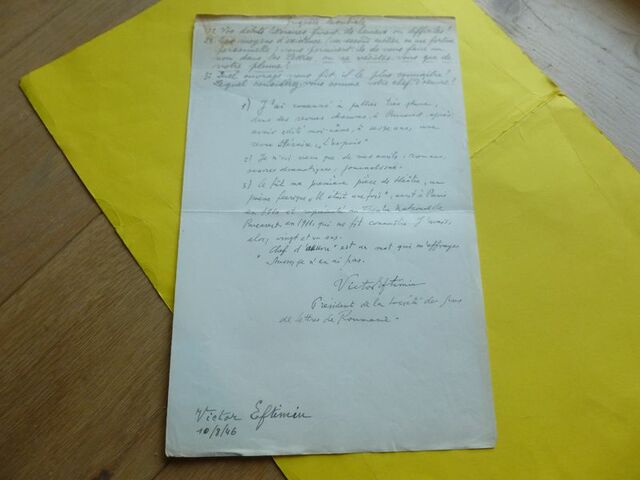 Enquête mondiale
1º Vos débuts littéraires furent-ils heureux ou difficiles ?
2º Les moyens d'existence, un second métier ou une fortune
personnelle, vous permirent-ils de vous faire un
nom dans les lettres ou ne vécûtes-vous que de
votre plume ?
3º Quel ouvrage vous fit-il le plus connaître ?
Lequel considérez-vous comme votre chef d'œuvre ?
1) J'ai commencé à publier très jeune,
dans des revues roumaines, à Bucarest après
avoir édité moi-même, à seize ans, une
revue littéraire,
2) Je n'ai vécu que de mes écrits : romans,
œuvres dramatiques, journalisme.
3) Ce fût ma première pièce de théâtre, un
poème féerique „Il était une fois", écrit à Paris
en 1910 et représenté au Théâtre National de
Bucarest, en 1911, qui me fit connaître. J'avais,
alors, vingt et un ans.
„Chef d'œuvre" est un mot qui m'effraye
Victor Eftimiu
Président de la Société des gens
de lettres de Roumanie.
Victor Eftimiu
10/8/46